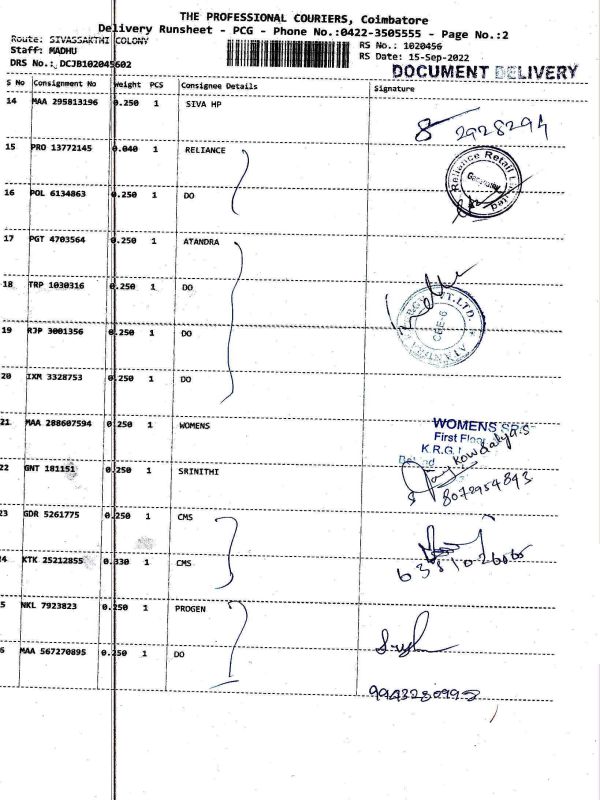 THE PROFESSIONAL COURIERS, Coimbatore
Delivery Runsheet - PCG - Phone No.:0422-3505555 - Page No.:2
Route: SIVASSAKTHI COLONY
Staff: MADHU
DRS No.: DCJB102045602
RS No.: 1020456
RS Date: 15-Sep-2022
DOCUMENT DELIVERY
S No Consignment No Weight PCS Consignee Details Signature
14 MAA 295813196 0.250 1 SIVA HP
2928294
15 PRO 13772145 0.040 1 RELIANCE
Reliance Retail Limited
16 POL 6134863 0.250 1 DO
17 PGT 4703564 0.250 1 ATANDRA
18 TRP 1030316 0.250 1 DO
PVT.LTD.
CBE-6
ATANDRA
19 RJP 3001356 0.250 1 DO
20 IXM 3328753 0.250 1 DO
21 MAA 288607594 0.250 1 WOMENS
WOMENS
First Floor
K.R.G.
Kowsalya.S
22 GNT 181151 0.250 1 SRINITHI
8072954893
23 GDR 5261775 0.250 1 CMS
24 KTK 25212855 0.330 1 CMS
5 NKL 7923823 0.250 1 PROGEN
6 MAA 567270895 0.250 1 DO
9943280995